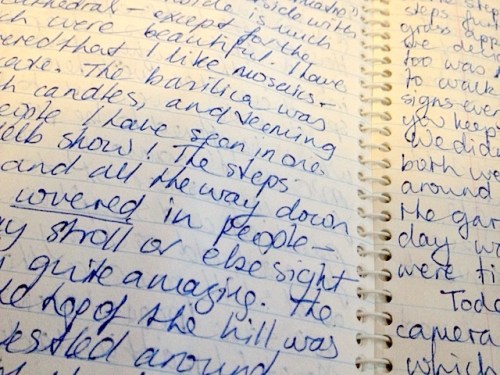 cathedral – inside is much
which were beautiful. I have
that I like mosaics –
The basilica was
candles, and seeming
people I have seen in one
show! The steps
and all the way down
covered in people –
stroll or else sight
quite amazing. The
top of the hill was
around
steps
grass
we
too was
to walk
signs
you keep
We did
both we
around
the gar
day w
were ti
Tod
camera
which